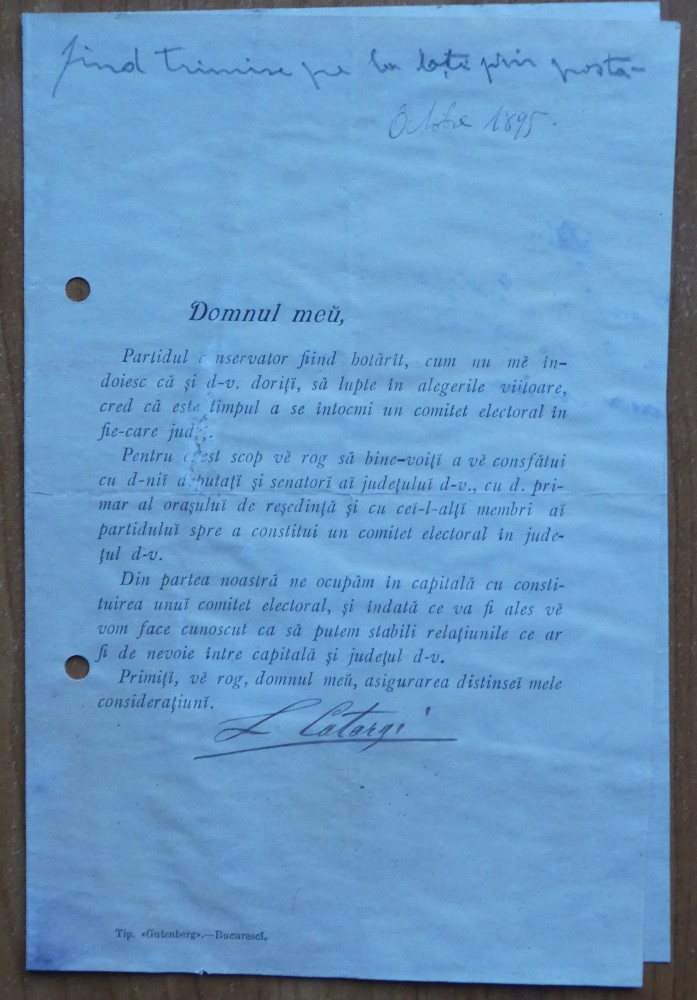 fiind trimise pe la toți prin posta
Octobre 1895.
Domnul meŭ,
Partidul conservator fiind hotărît, cum nu mĕ în-
doiesc că și d-v. dorițĭ, să lupte în alegerile viitoare,
cred că este timpul a se întocmi un comitet electoral în
fie-care județ.
Pentru acest scop vĕ rog să bine-voițĭ a vĕ consfătui
cu d-niĭ deputațĭ și senatorĭ aĭ judetuluĭ d-v., cu d. pri-
mar al orașuluĭ de reședință și cu ceĭ-l-alțĭ membri aĭ
partiduluĭ spre a constitui un comitet electoral în jude-
țul d-v.
Din partea noastră ne ocupăm în capitală cu consti-
tuirea unuĭ comitet electoral, și îndată ce va fi ales vĕ
vom face cunoscut ca să putem stabili relațiunile ce ar
fi de nevoie între capitală și județul d-v.
Primițĭ, vĕ rog, domnul meŭ, asigurarea distinseĭ mele
considerațiunĭ.
L Catargi
Tip. «Gutenberg».—Bucurescĭ.